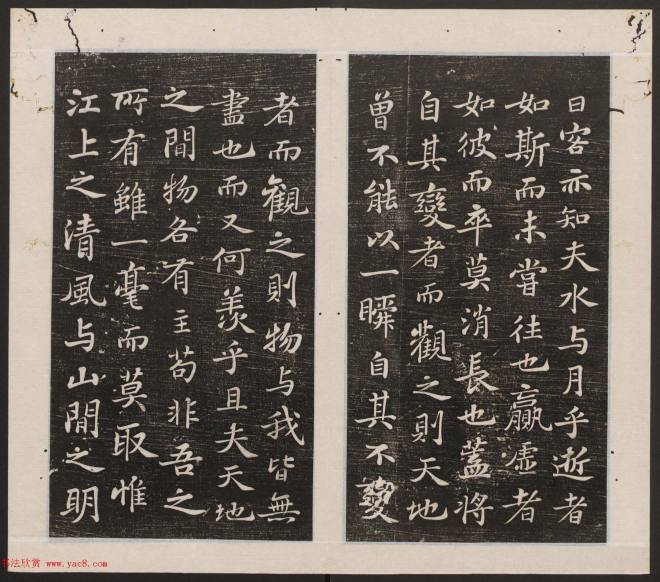 曰客亦知夫水与月乎逝者
如斯而未嘗往也贏虛者
如彼而卒莫消長也蓋將
自其變者而觀之則天地
曾不能以一瞬自其不變
者而觀之則物与我皆無
盡也而又何羨乎且夫天地
之間物各有主苟非吾之
所有雖一毫而莫取惟
江上之清風与山間之明
书法欣赏 www.yac8.com